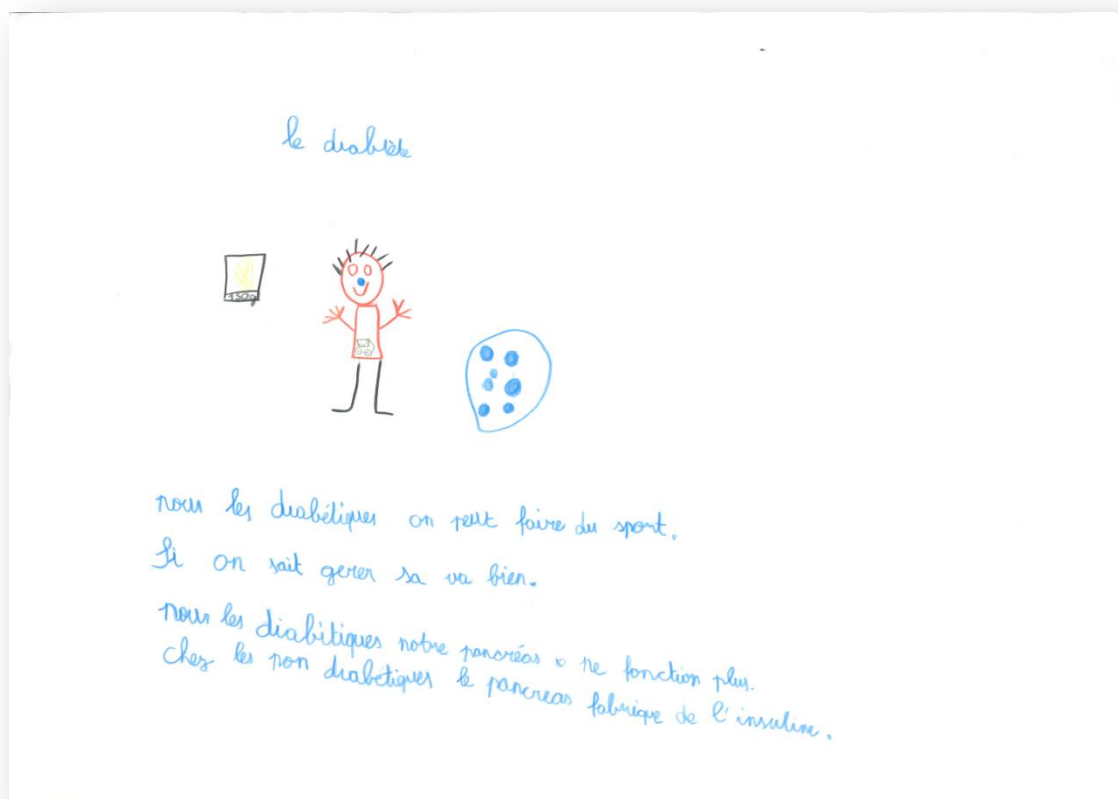 le diabète
150g
nous les diabétiques on peut faire du sport.
Si on sait gerer sa va bien.
nous les diabitiques notre pancréas ne fonction plus.
chez les non diabétiques le pancreas fabrique de l'insuline.